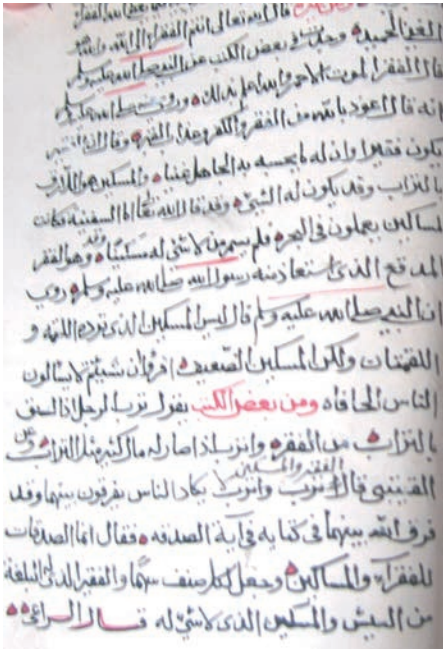 قال الله تعالى انتم الفقراء الى الله والله هو
الغني الحميد وجدت في بعض الكتب عن النبي صلى الله عليه وسلم
قال الفقر الموت الاحمر والله اعلم بذلك وروي عنه صلى الله عليه وسلم
انه قال اعوذ بالله من الفقر والكفر وعذاب القبر وقال ان الفقير
يكون فقيرا وان له ما يحسبه به الجاهل غنيا والمسكين هو اللازق
بالتراب وقد يكون له الشيء وقد قال الله تعالى اما السفينة فكانت
لمساكين يعملون في البحر فلم يسم من لا شيء له مسكينا وهو الفقر
المدقع الذي استعاذ منه رسول الله صلى الله عليه وسلم روي
ان النبي صلى الله عليه وسلم قال ليس المسكين الذي ترده اللقمة و
اللقمتان ولكن المسكين الضعيف اقرؤا ان شيتم لا يسالون
الناس الحافا ومن بعض الكتب يقول ترب الرجل اذا لصق
بالتراب من الفقر واترب اذا صار له مال كثير مثل التراب وعن
القتيبي قال ترب واترب لا يكاد الناس يفرقون بينهما وقد
الفقير والمسكين
فرق الله بينهما في كتابه في آية الصدقة فقال انما الصدقات
للفقراء والمساكين وجعل لكل صنف سهما والفقير الذي له البلغة
من العيش والمسكين الذي لا شيء له قال الراعي